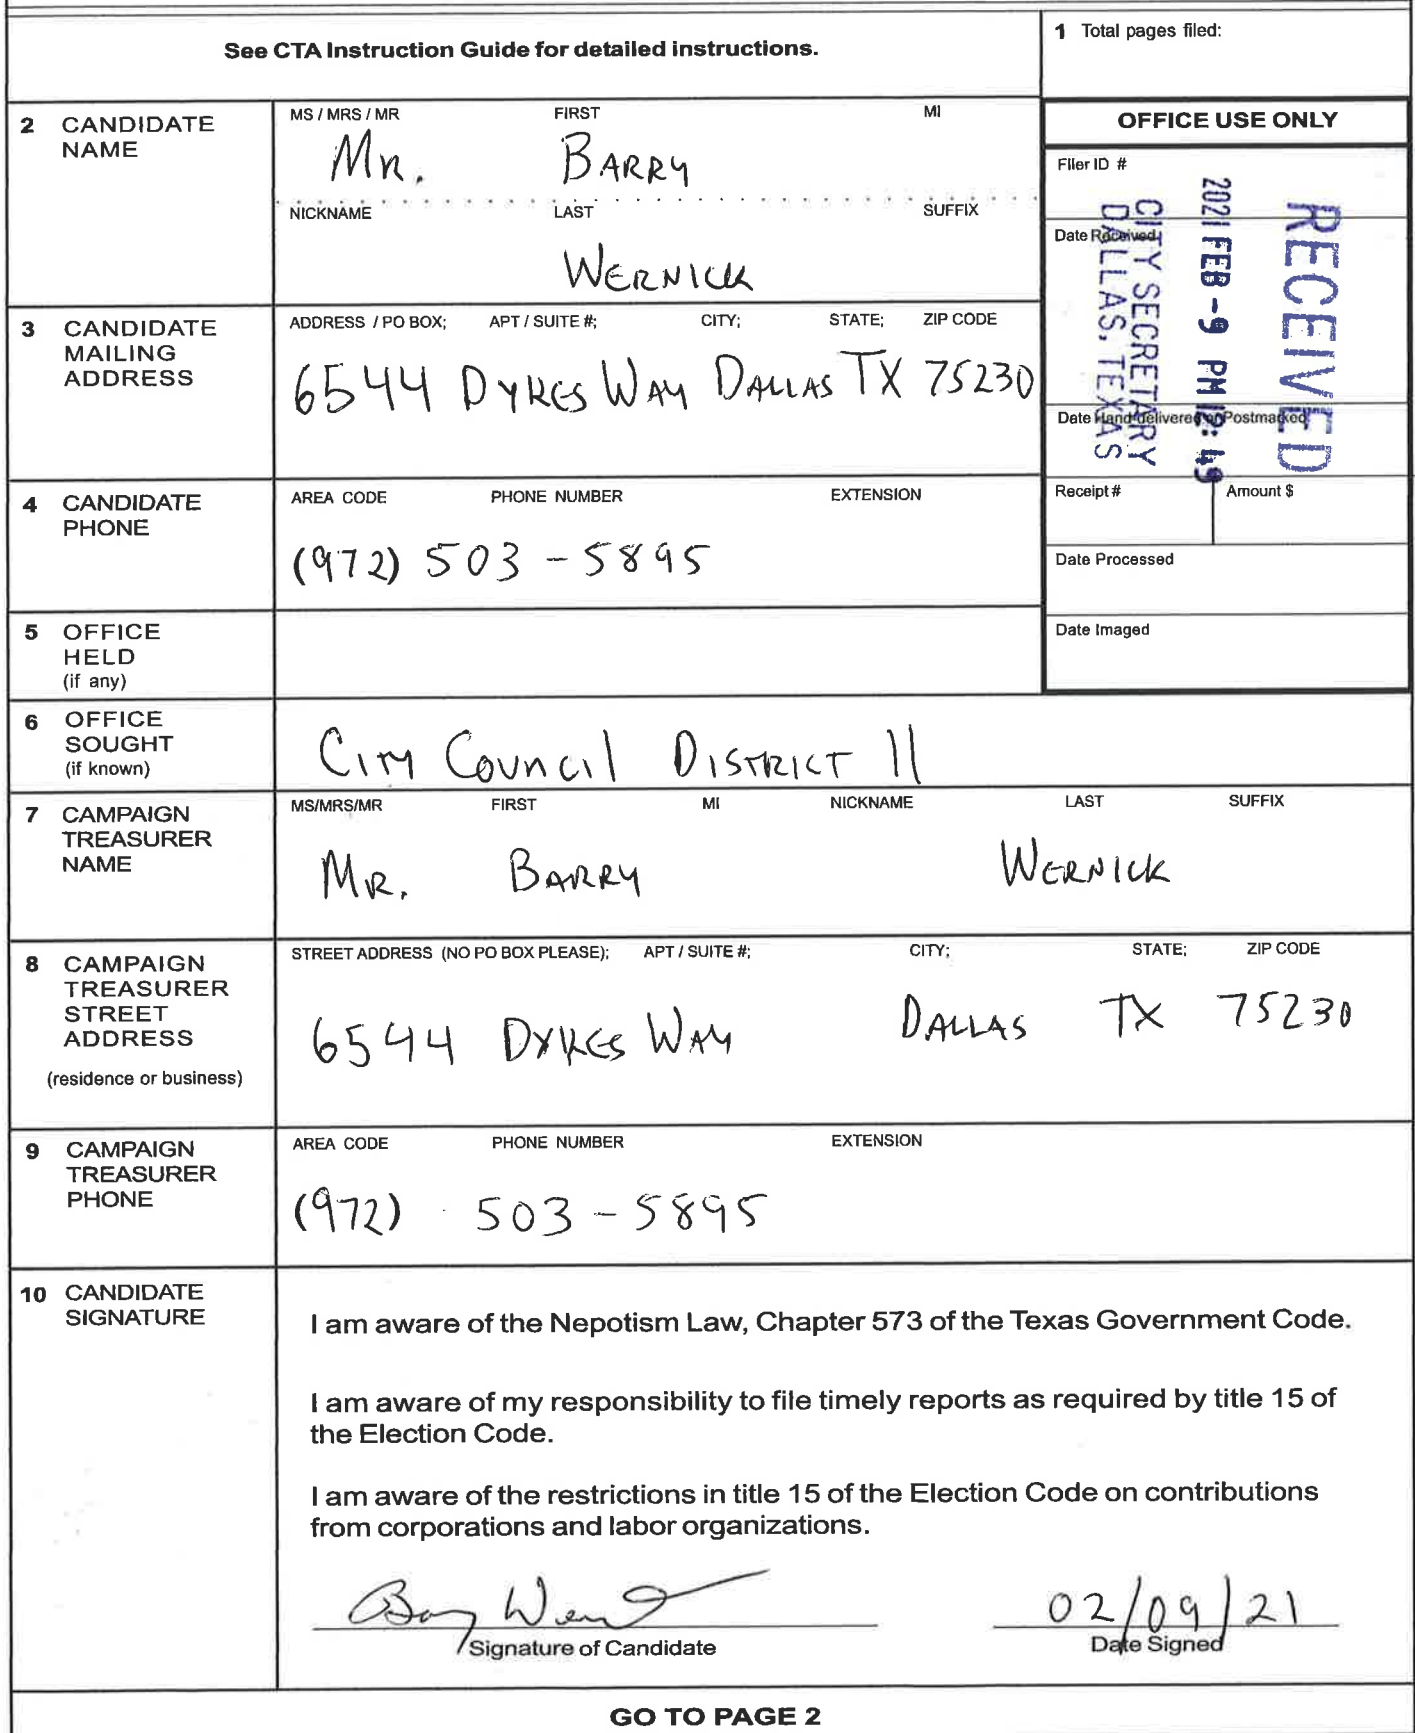 See CTA Instruction Guide for detailed instructions.
1 Total pages filed:
2 CANDIDATE NAME
MS / MRS / MR FIRST MI
Mr. BARRY
NICKNAME LAST SUFFIX
WERNICK
OFFICE USE ONLY
Filer ID #
Date Received
Date Hand-delivered or Postmarked
Receipt # Amount $
Date Processed
Date Imaged
RECEIVED
2021 FEB -9 PM 12:49
CITY SECRETARY
DALLAS, TEXAS
3 CANDIDATE MAILING ADDRESS
ADDRESS / PO BOX; APT / SUITE #; CITY; STATE; ZIP CODE
6544 DYKES WAY DALLAS TX 75230
4 CANDIDATE PHONE
AREA CODE PHONE NUMBER EXTENSION
(972) 503 - 5895
5 OFFICE HELD (if any)
6 OFFICE SOUGHT (if known)
CITY COUNCIL DISTRICT 11
7 CAMPAIGN TREASURER NAME
MS/MRS/MR FIRST MI NICKNAME LAST SUFFIX
MR. BARRY WERNICK
8 CAMPAIGN TREASURER STREET ADDRESS (residence or business)
STREET ADDRESS (NO PO BOX PLEASE); APT / SUITE #; CITY; STATE; ZIP CODE
6544 DYKES WAY DALLAS TX 75230
9 CAMPAIGN TREASURER PHONE
AREA CODE PHONE NUMBER EXTENSION
(972) 503 - 5895
10 CANDIDATE SIGNATURE
I am aware of the Nepotism Law, Chapter 573 of the Texas Government Code.
I am aware of my responsibility to file timely reports as required by title 15 of
the Election Code.
I am aware of the restrictions in title 15 of the Election Code on contributions
from corporations and labor organizations.
02/09/21
Signature of Candidate Date Signed
GO TO PAGE 2